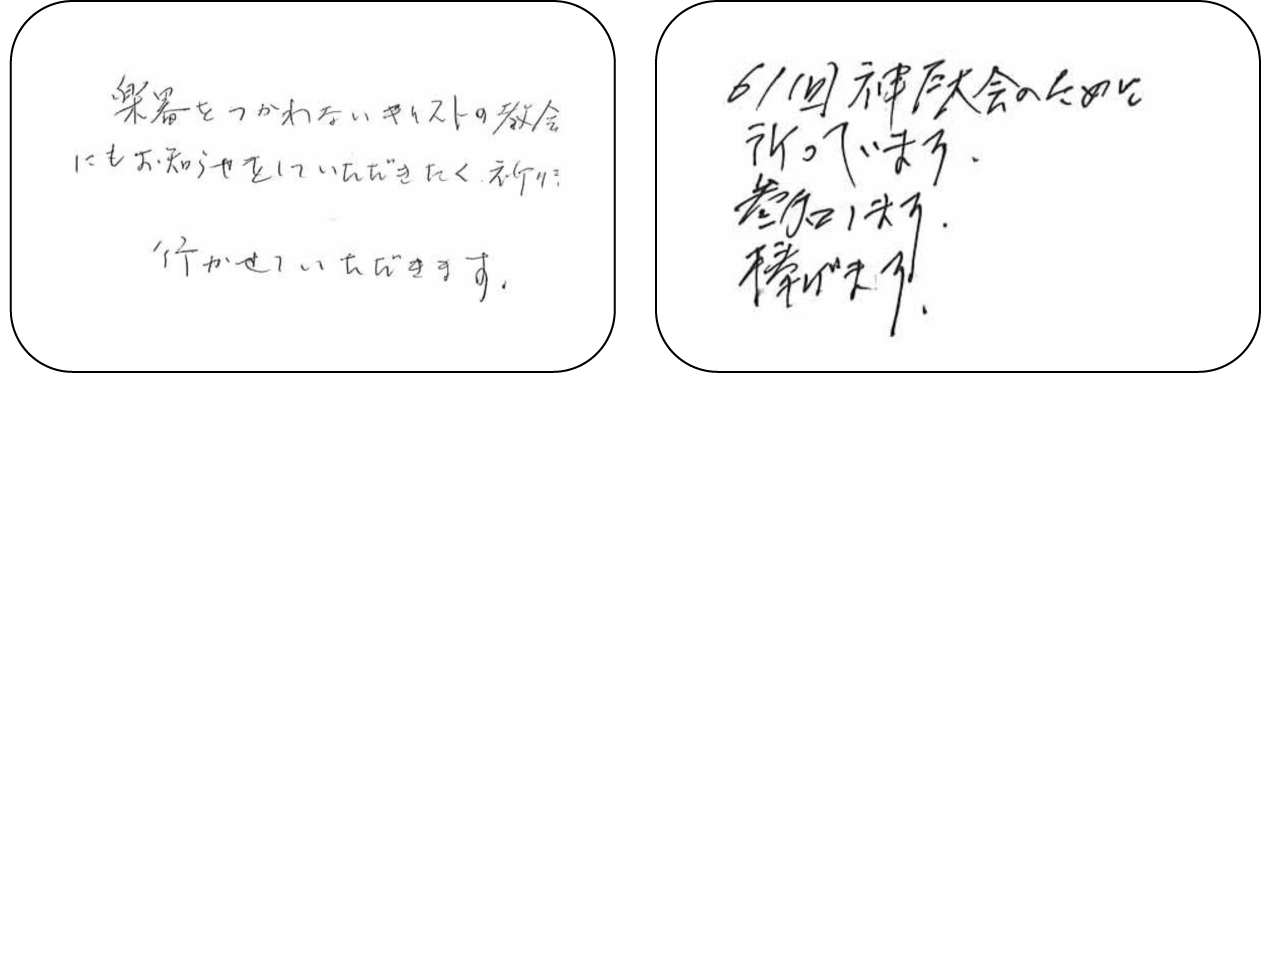 楽器をつかわないキリストの教会
にもお知らせをしていただきたく祈りま
行かせていただきます.
61回神戸大会のために
祈っています.
参加します.
捧げます.